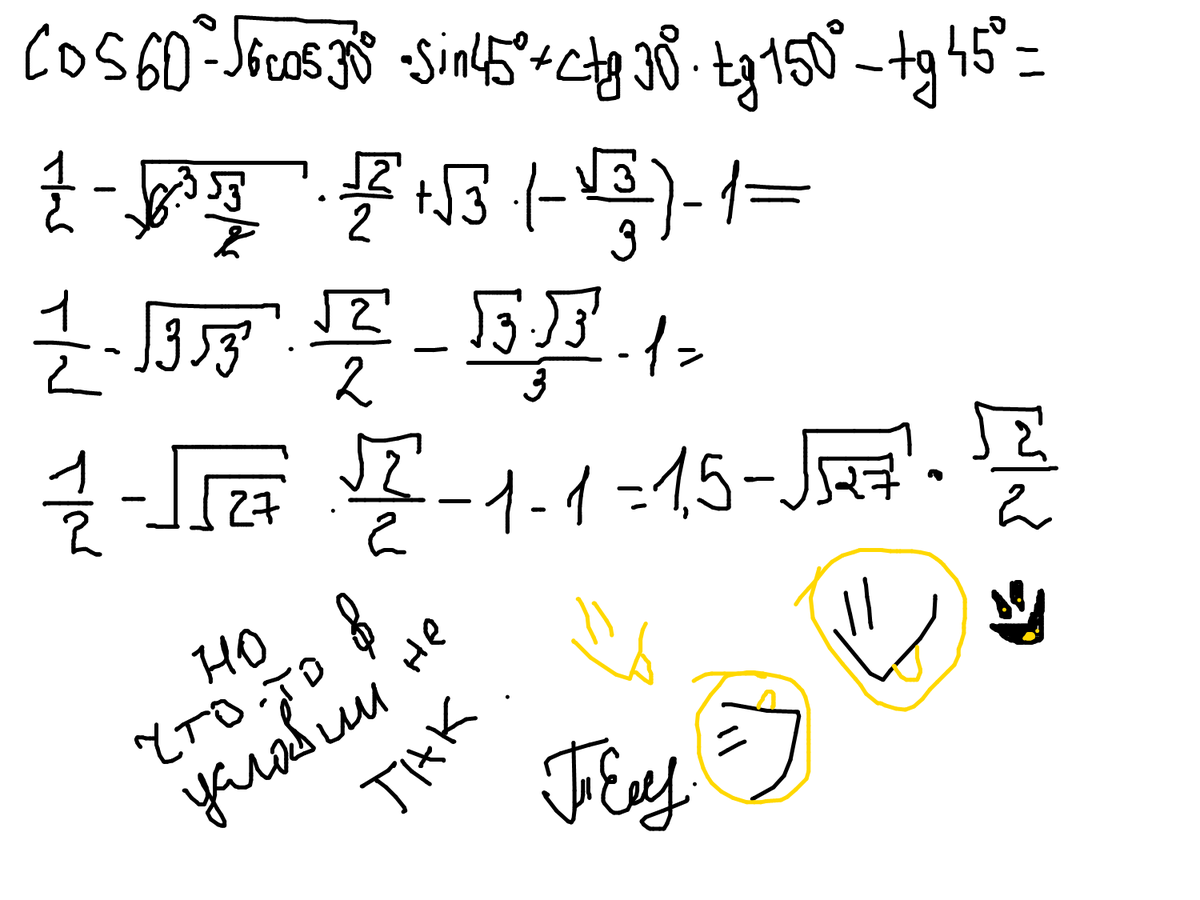 cos60° - √6cos30° · sin45° + ctg30° · tg150° - tg45° =
1/2 - √6·3 √3/2 · √2/2 + √3 · (- √3/3) - 1 =
1/2 - √3√3 · √2/2 - √3·√3/3 - 1 =
1/2 - √√27 · √2/2 - 1 - 1 = 1,5 - √√27 · √2/2
но
что-то в
условии не